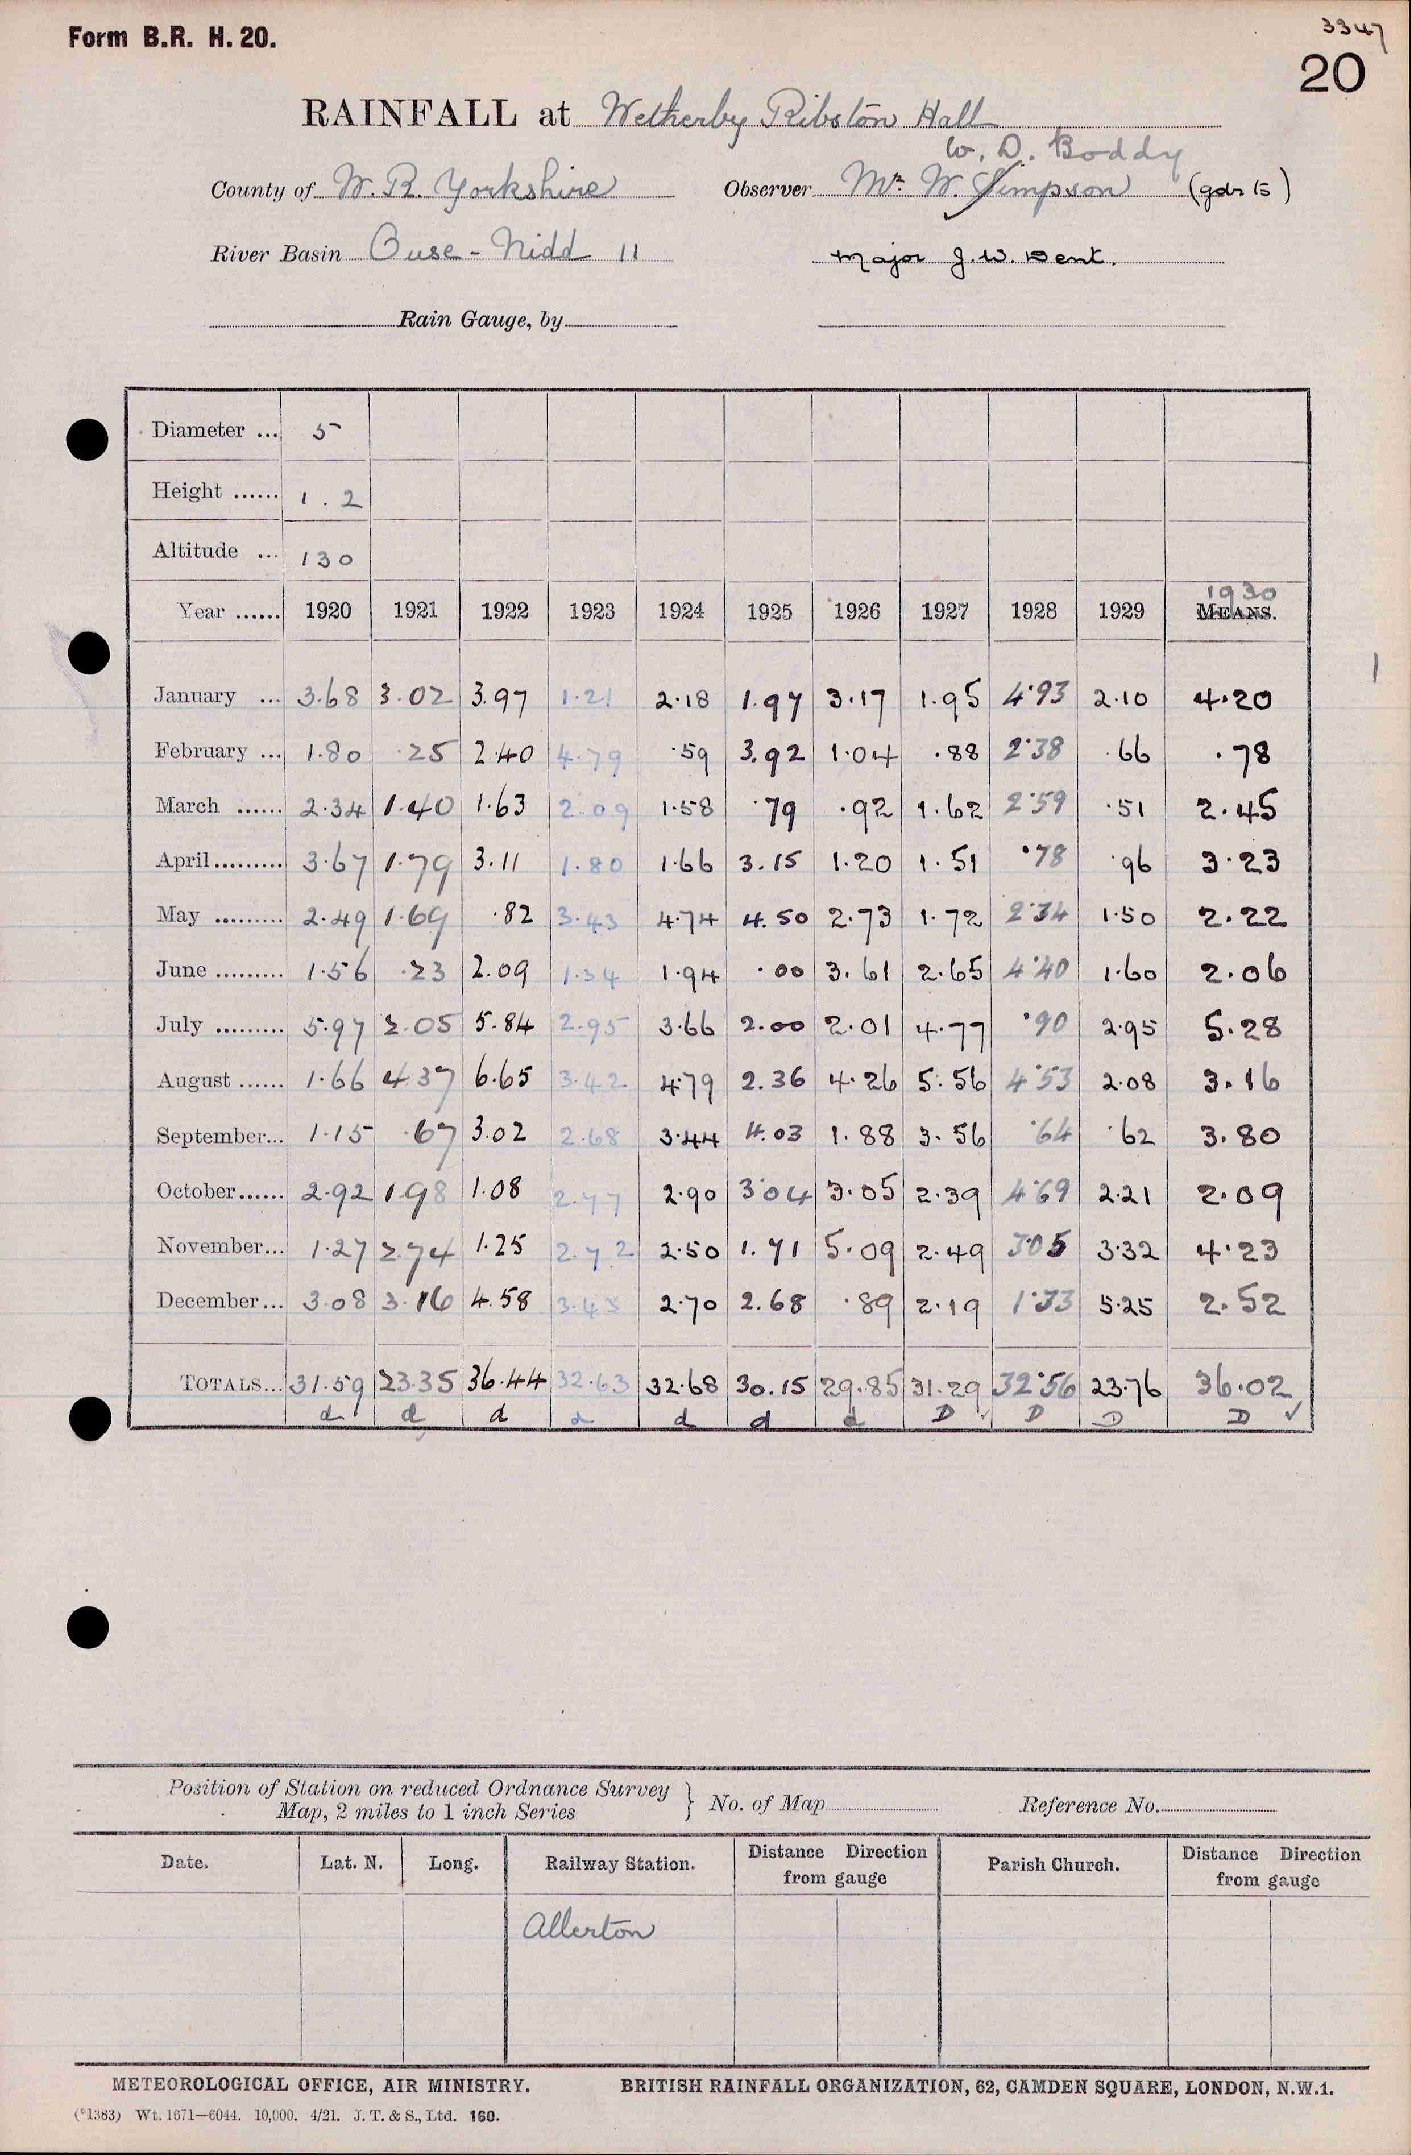 Form B.R. H. 20.
3347
20
RAINFALL at Wetherby Ribston Hall
W. D. Boddy
County of W. R. Yorkshire Observer Mr. W. Simpson (gdr to)
River Basin Ouse - Nidd 11 Major J. W. Dent.
Rain Gauge, by
Diameter ... 5
Height ...... 1 . 2
Altitude ... 130
1930
Year ...... 1920 1921 1922 1923 1924 1925 1926 1927 1928 1929 MEANS.
January ... 3.68 3.02 3.97 1.21 2.18 1.97 3.17 1.95 4.93 2.10 4.20
February ... 1.80 .25 2.40 4.79 .59 3.92 1.04 .88 2.38 .66 .78
March ...... 2.34 1.40 1.63 2.09 1.58 .79 .92 1.62 2.59 .51 2.45
April......... 3.67 1.79 3.11 1.80 1.66 3.15 1.20 1.51 .78 .96 3.23
May ......... 2.49 1.69 .82 3.43 4.74 4.50 2.73 1.72 2.34 1.50 2.22
June ......... 1.56 .23 2.09 1.34 1.94 .00 3.61 2.65 4.40 1.60 2.06
July ......... 5.97 2.05 5.84 2.95 3.66 2.00 2.01 4.77 .90 2.95 5.28
August ...... 1.66 4.37 6.65 3.42 4.79 2.36 4.26 5.56 4.53 2.08 3.16
September... 1.15 .67 3.02 2.68 3.44 4.03 1.88 3.56 .64 .62 3.80
October...... 2.92 1.98 1.08 2.77 2.90 3.04 3.05 2.39 4.69 2.21 2.09
November... 1.27 2.74 1.25 2.72 2.50 1.71 5.09 2.49 3.05 3.32 4.23
December... 3.08 3.16 4.58 3.43 2.70 2.68 .89 2.19 1.33 5.25 2.52
TOTALS... 31.59 23.35 36.44 32.63 32.68 30.15 29.85 31.29 32.56 23.76 36.02
d d d d d d d D D D D
Position of Station on reduced Ordnance Survey
Map, 2 miles to 1 inch Series } No. of Map Reference No.
Date. Lat. N. Long. Railway Station. Distance Direction from gauge Parish Church. Distance Direction from gauge
Allerton
METEOROLOGICAL OFFICE, AIR MINISTRY. BRITISH RAINFALL ORGANIZATION, 62, CAMDEN SQUARE, LONDON, N.W.1.
(*1383) Wt. 1671—6044. 10,000. 4/21. J. T. & S., Ltd. 160.